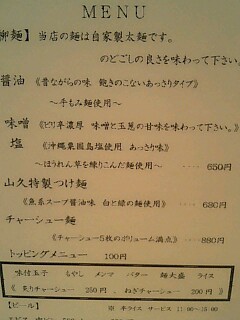 MENU
柳麺】当店の麺は自家製太麺です。
のどごしの良さを味わって下さい。
醤油 《昔ながらの味 飽きのこないあっさりタイプ》
～手もみ麺使用～
味噌 《ピリ辛濃厚 味噌と玉葱の甘味を味わって下さい。》
塩 《沖縄粟国島塩使用 あっさり味》
～ほうれん草を練りこんだ麺使用～ 650円
山久特製つけ麺
《魚系スープ醤油味 白と緑の麺使用》 680円
チャーシュー麺
《チャーシュー5枚のボリューム満点》 880円
トッピングメニュー 100円
味付玉子 もやし メンマ バター 麺大盛 ライス
《 炙りチャーシュー 250円 、ねぎチャーシュー 200円 》
【ビール】 ※ 半ライス サービス 11:00～15:00